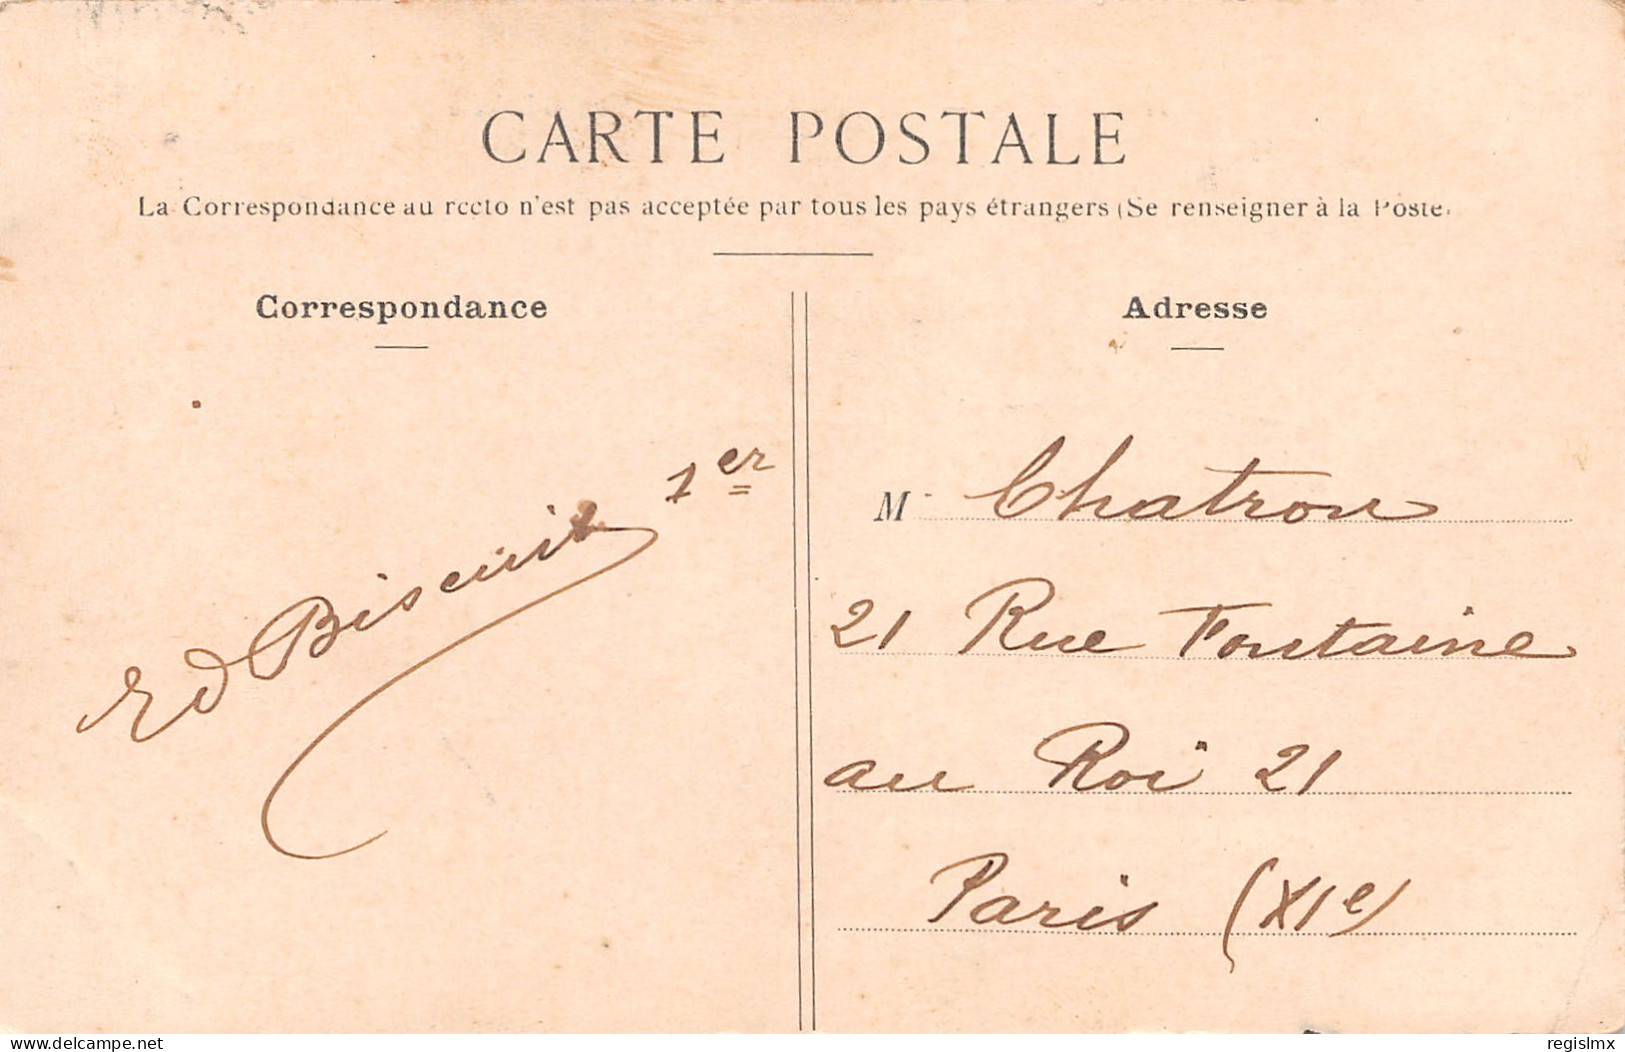 CARTE POSTALE
La Correspondance au recto n'est pas acceptée par tous les pays étrangers (Se renseigner à la Poste)
Correspondance
Ed Biscuit 1er
Adresse
M Chatron
21 Rue Fontaine
au Roi 21
Paris (XIe)
www.delcampe.net
regislmx